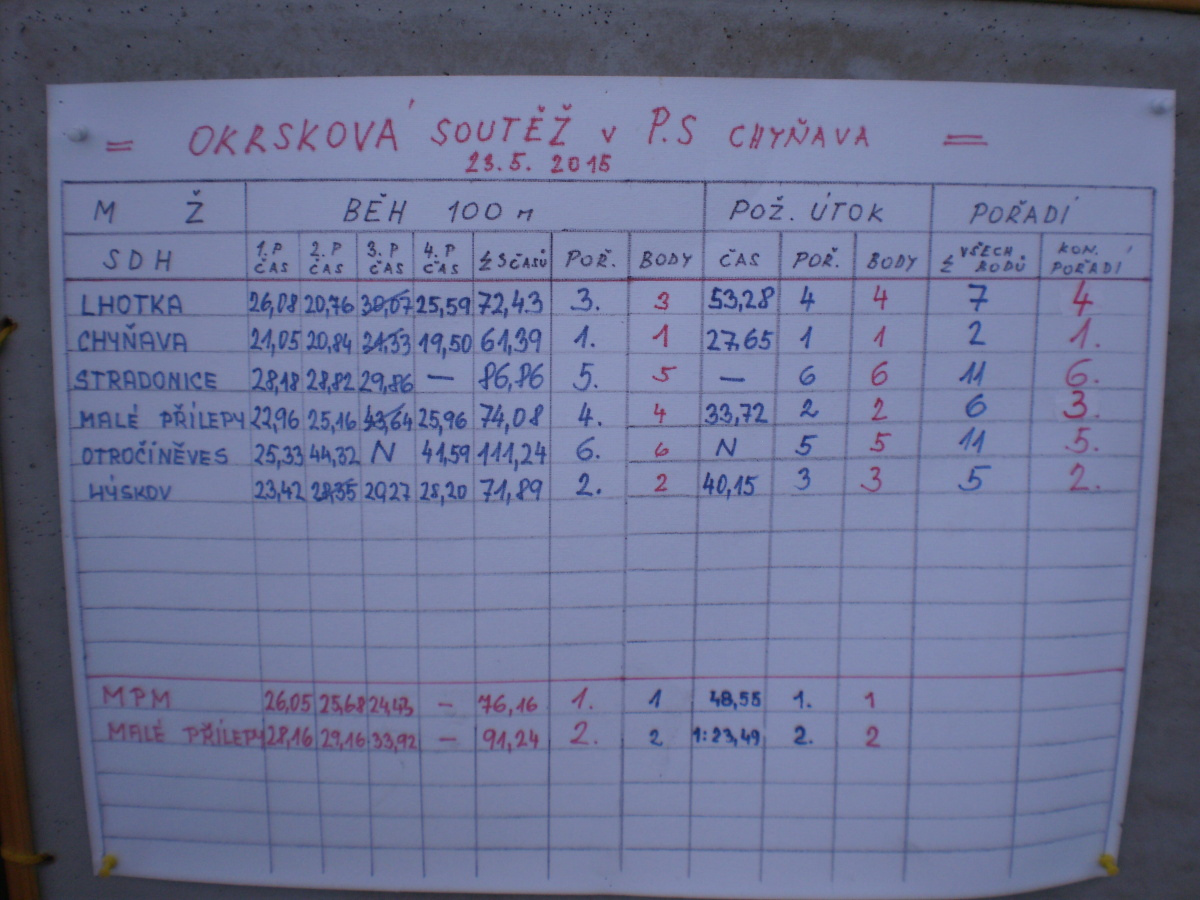 = OKRSKOVÁ SOUTĚŽ v P.S CHYŇAVA =
23.5. 2015
M Ž BĚH 100 m POŽ. ÚTOK POŘADÍ
SDH 1. P ČAS 2. P ČAS 3. P ČAS 4. P ČAS Σ 3 ČASŮ POŘ. BODY ČAS POŘ. BODY Σ VŠECH BODŮ KON. POŘADÍ
LHOTKA 26,08 20,76 30,07 25,59 72,43 3. 3 53,28 4 4 7 4.
CHYŇAVA 21,05 20,84 21,53 19,50 61,39 1. 1 27,65 1 1 2 1.
STRADONICE 28,18 28,82 29,86 — 86,86 5. 5 — 6 6 11 6.
MALÉ PŘÍLEPY 22,96 25,16 43,64 25,96 74,08 4. 4 33,72 2 2 6 3.
OTROČÍNĚVES 25,33 44,32 N 41,59 111,24 6. 6 N 5 5 11 5.
HÝSKOV 23,42 28,35 20,27 28,20 71,89 2. 2 40,15 3 3 5 2.
MPM 26,05 25,68 24,43 — 76,16 1. 1 48,55 1. 1
MALÉ PŘÍLEPY 28,16 29,16 33,92 — 91,24 2. 2 1:23,49 2. 2